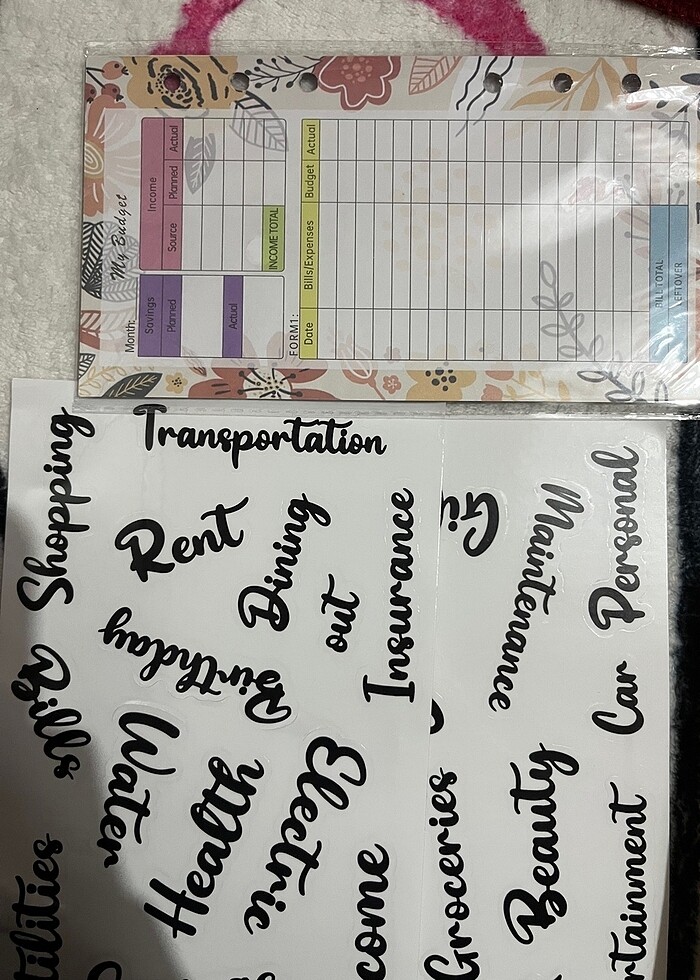 My Budget
Month:
Savings
Planned
Actual
Income
Source
Planned
Actual
INCOME TOTAL
FORM1:
Date
Bills/Expenses
Budget
Actual
BILL TOTAL
LEFTOVER
Transportation
Shopping
Rent
Dining
out
Insurance
Gi
Maintenance
Personal
Car
Birthday
Bills
Water
Health
Electric
come
Groceries
Beauty
rtainment
tilities